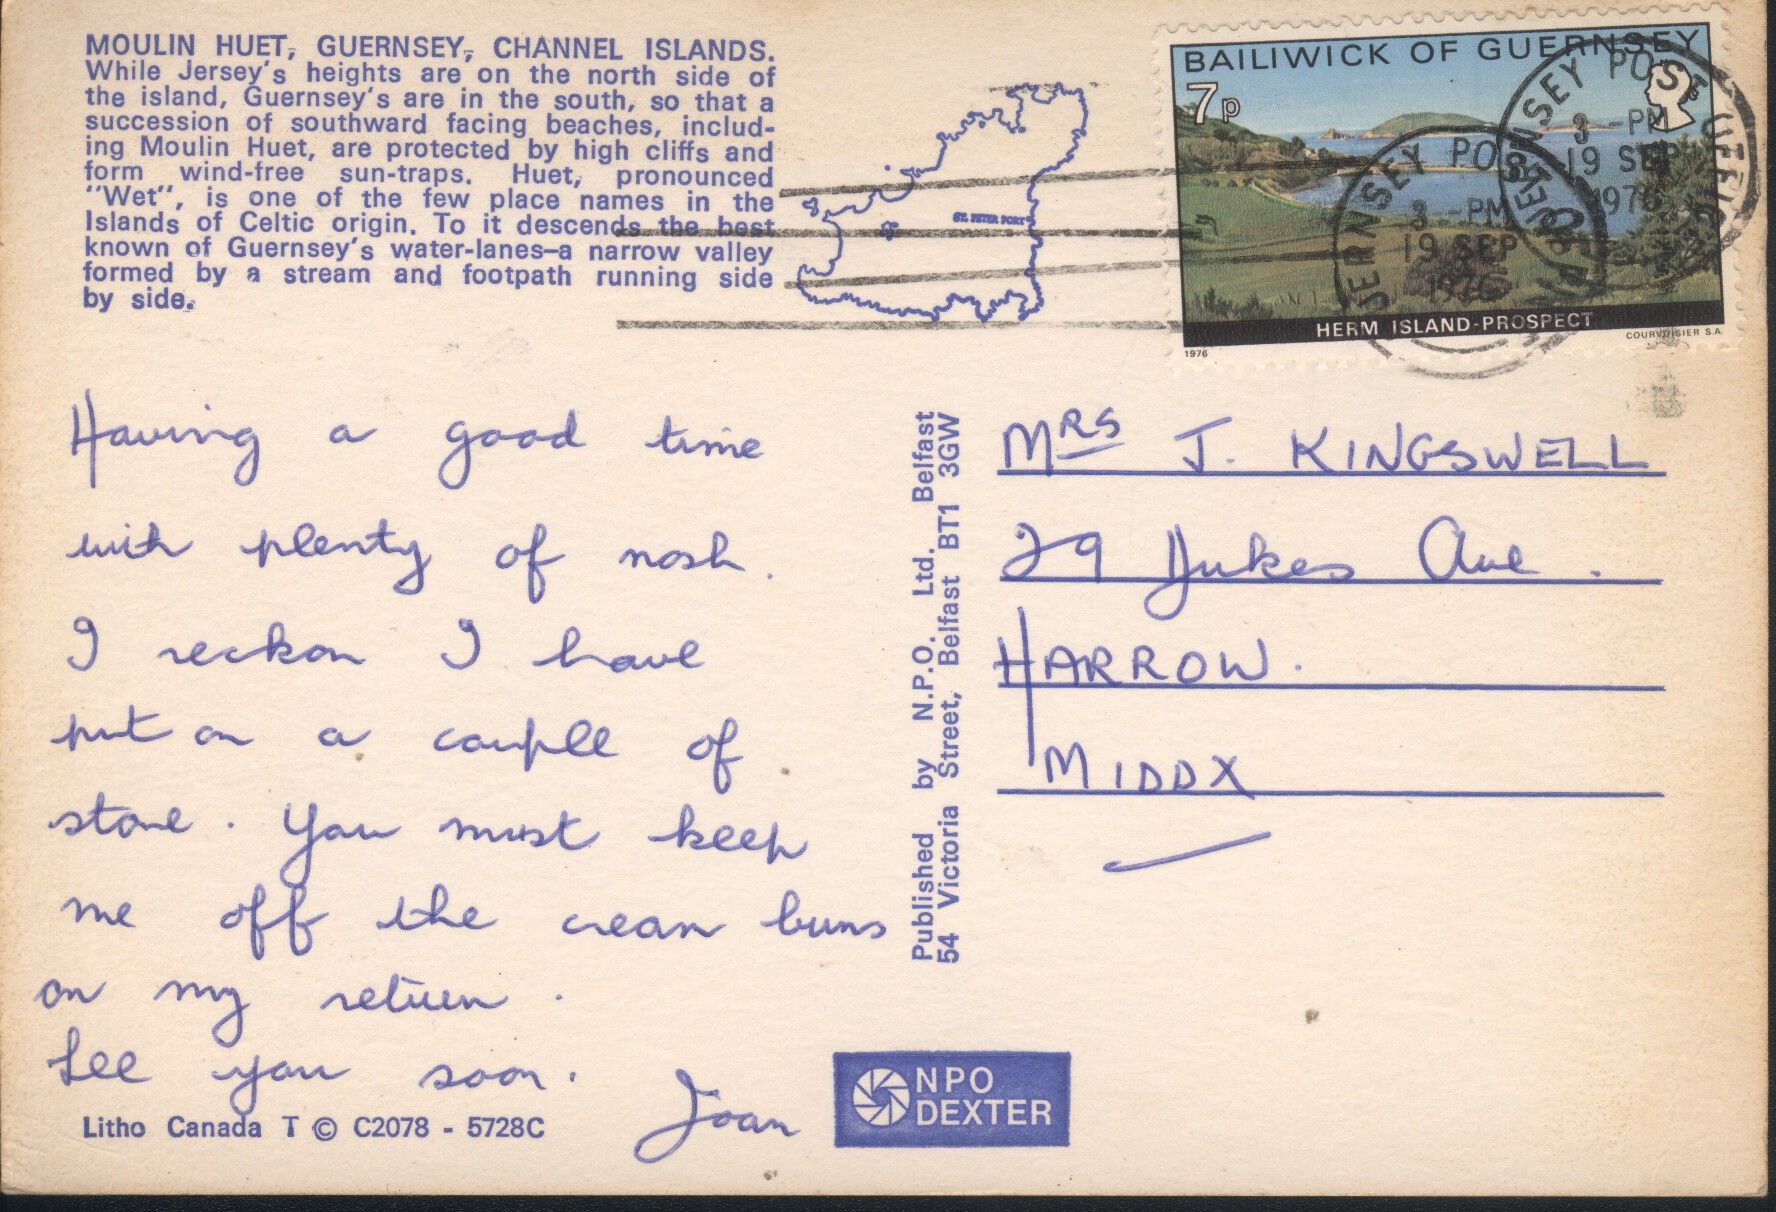 MOULIN HUET, GUERNSEY, CHANNEL ISLANDS.
While Jersey's heights are on the north side of
the island, Guernsey's are in the south, so that a
succession of southward facing beaches, includ-
ing Moulin Huet, are protected by high cliffs and
form wind-free sun-traps. Huet, pronounced
"Wet", is one of the few place names in the
Islands of Celtic origin. To it descends the best
known of Guernsey's water-lanes—a narrow valley
formed by a stream and footpath running side
by side.
ST. PETER PORT
BAILIWICK OF GUERNSEY
7p
HERM ISLAND-PROSPECT
COURVOISIER S.A.
1976
GUERNSEY POST OFFICE
3 -PM
19 SEP
1976
GUERNSEY POST OFFICE
3 -PM
19 SEP
1976
Having a good time
with plenty of nosh.
I reckon I have
put on a couple of
stone. You must keep
me off the cream buns
on my return.
See you soon.
Joan
Published by N.P.O. Ltd. Belfast
54 Victoria Street, Belfast BT1 3GW
Mrs J. KINGSWELL
29 Dukes Ave.
HARROW.
MIDDX
NPO
DEXTER
Litho Canada T © C2078 - 5728C